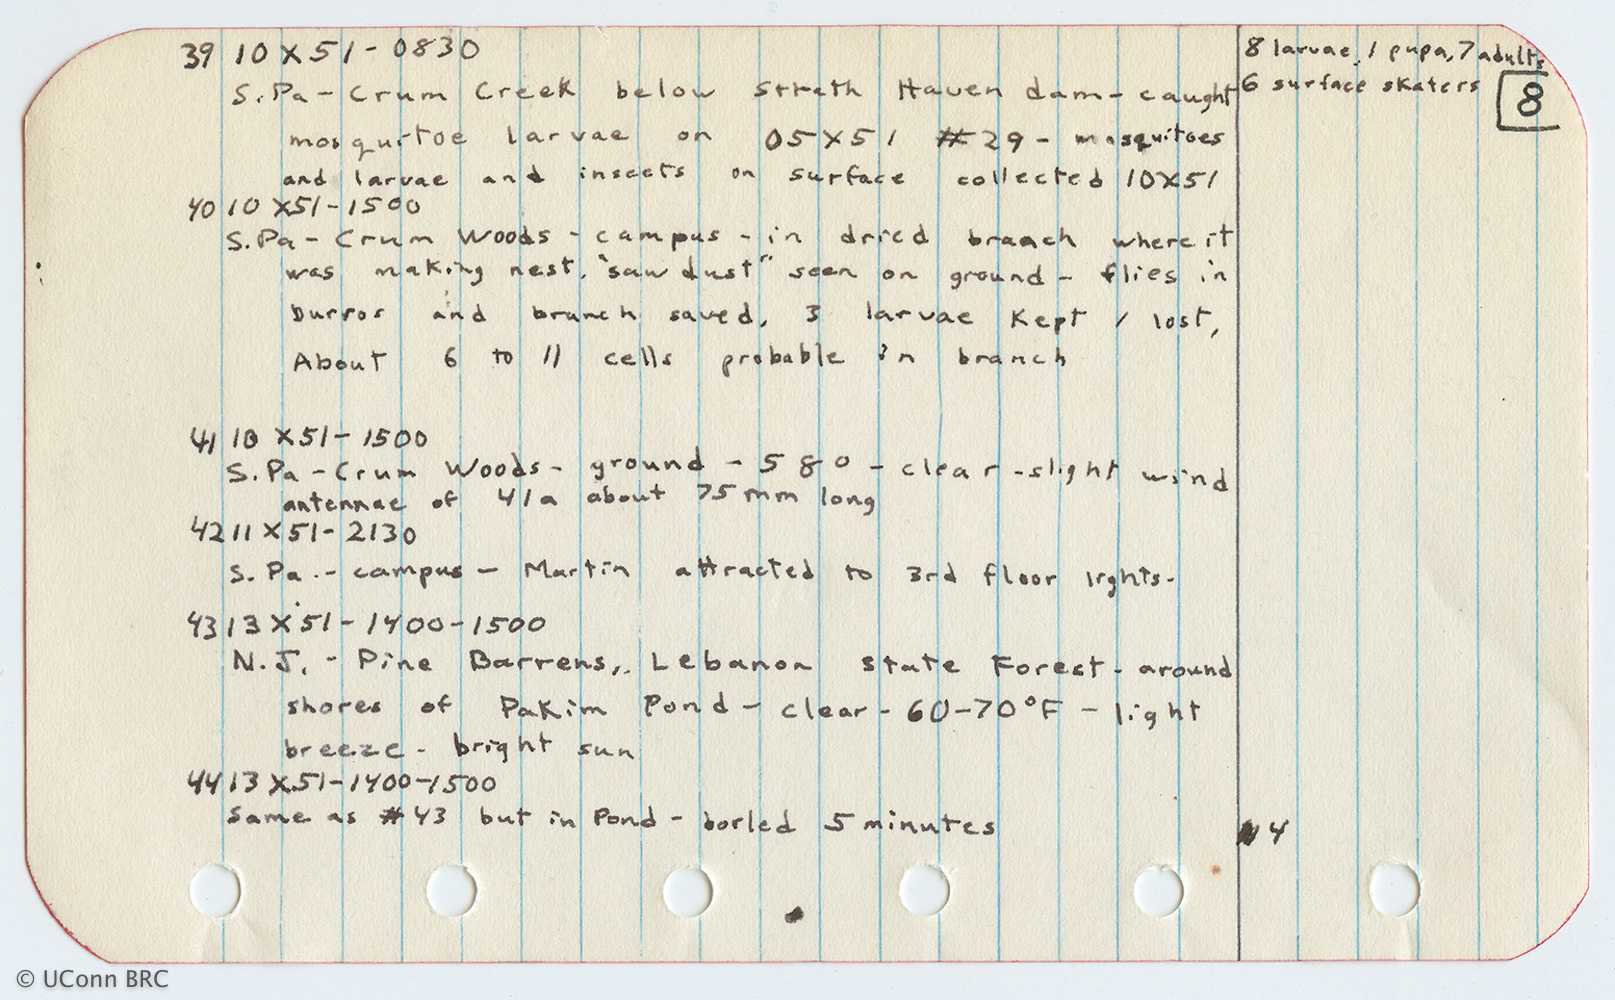 39 10 X 51 - 0830
8 larvae, 1 pupa, 7 adults
6 surface skaters
8
S. Pa - Crum Creek below Strath Haven dam - caught
mosquitoe larvae on 05 X 51 #29 - mosquitoes
and larvae and insects on surface collected 10X51
40 10 X51 - 1500
S. Pa - Crum Woods - campus - in dried branch where it
was making nest. "saw dust" seen on ground - flies in
burros and branch saved, 3 larvae Kept 1 lost,
About 6 to 11 cells probable in branch
41 10 X51 - 1500
S. Pa - Crum Woods - ground - 580 - clear - slight wind
antennae of 41a about 75 mm long
42 11 X 51 - 2130
S. Pa. - campus - Martin attracted to 3rd floor lights -
43 13 X 51 - 1400 - 1500
N. J. - Pine Barrens, Lebanon State Forest - around
shores of Pakim Pond - clear - 60-70°F - light
breeze - bright sun
44 13 X 51 - 1400 - 1500
Same as #43 but in Pond - boiled 5 minutes
4
© UConn BRC